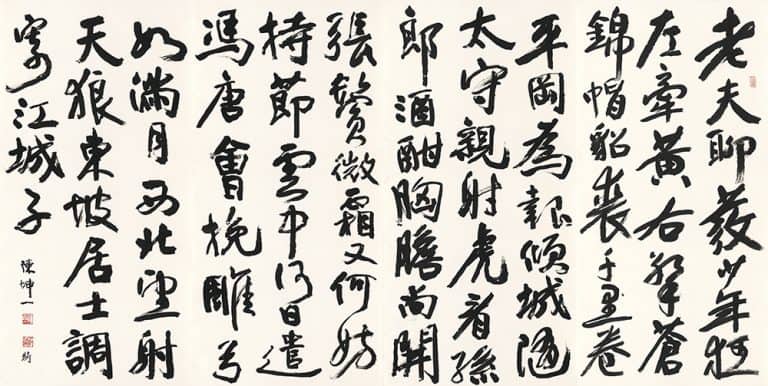 老夫聊發少年狂
左牽黃右擎蒼
錦帽貂裘千里卷
平岡為報傾城隨
太守親射虎看孫
郎酒酣胸膽尚開
張鬢微霜又何妨
持節雲中何日遣
馮唐會挽雕弓
如滿月西北望射
天狼東坡居士調
寄江城子
陳坤一